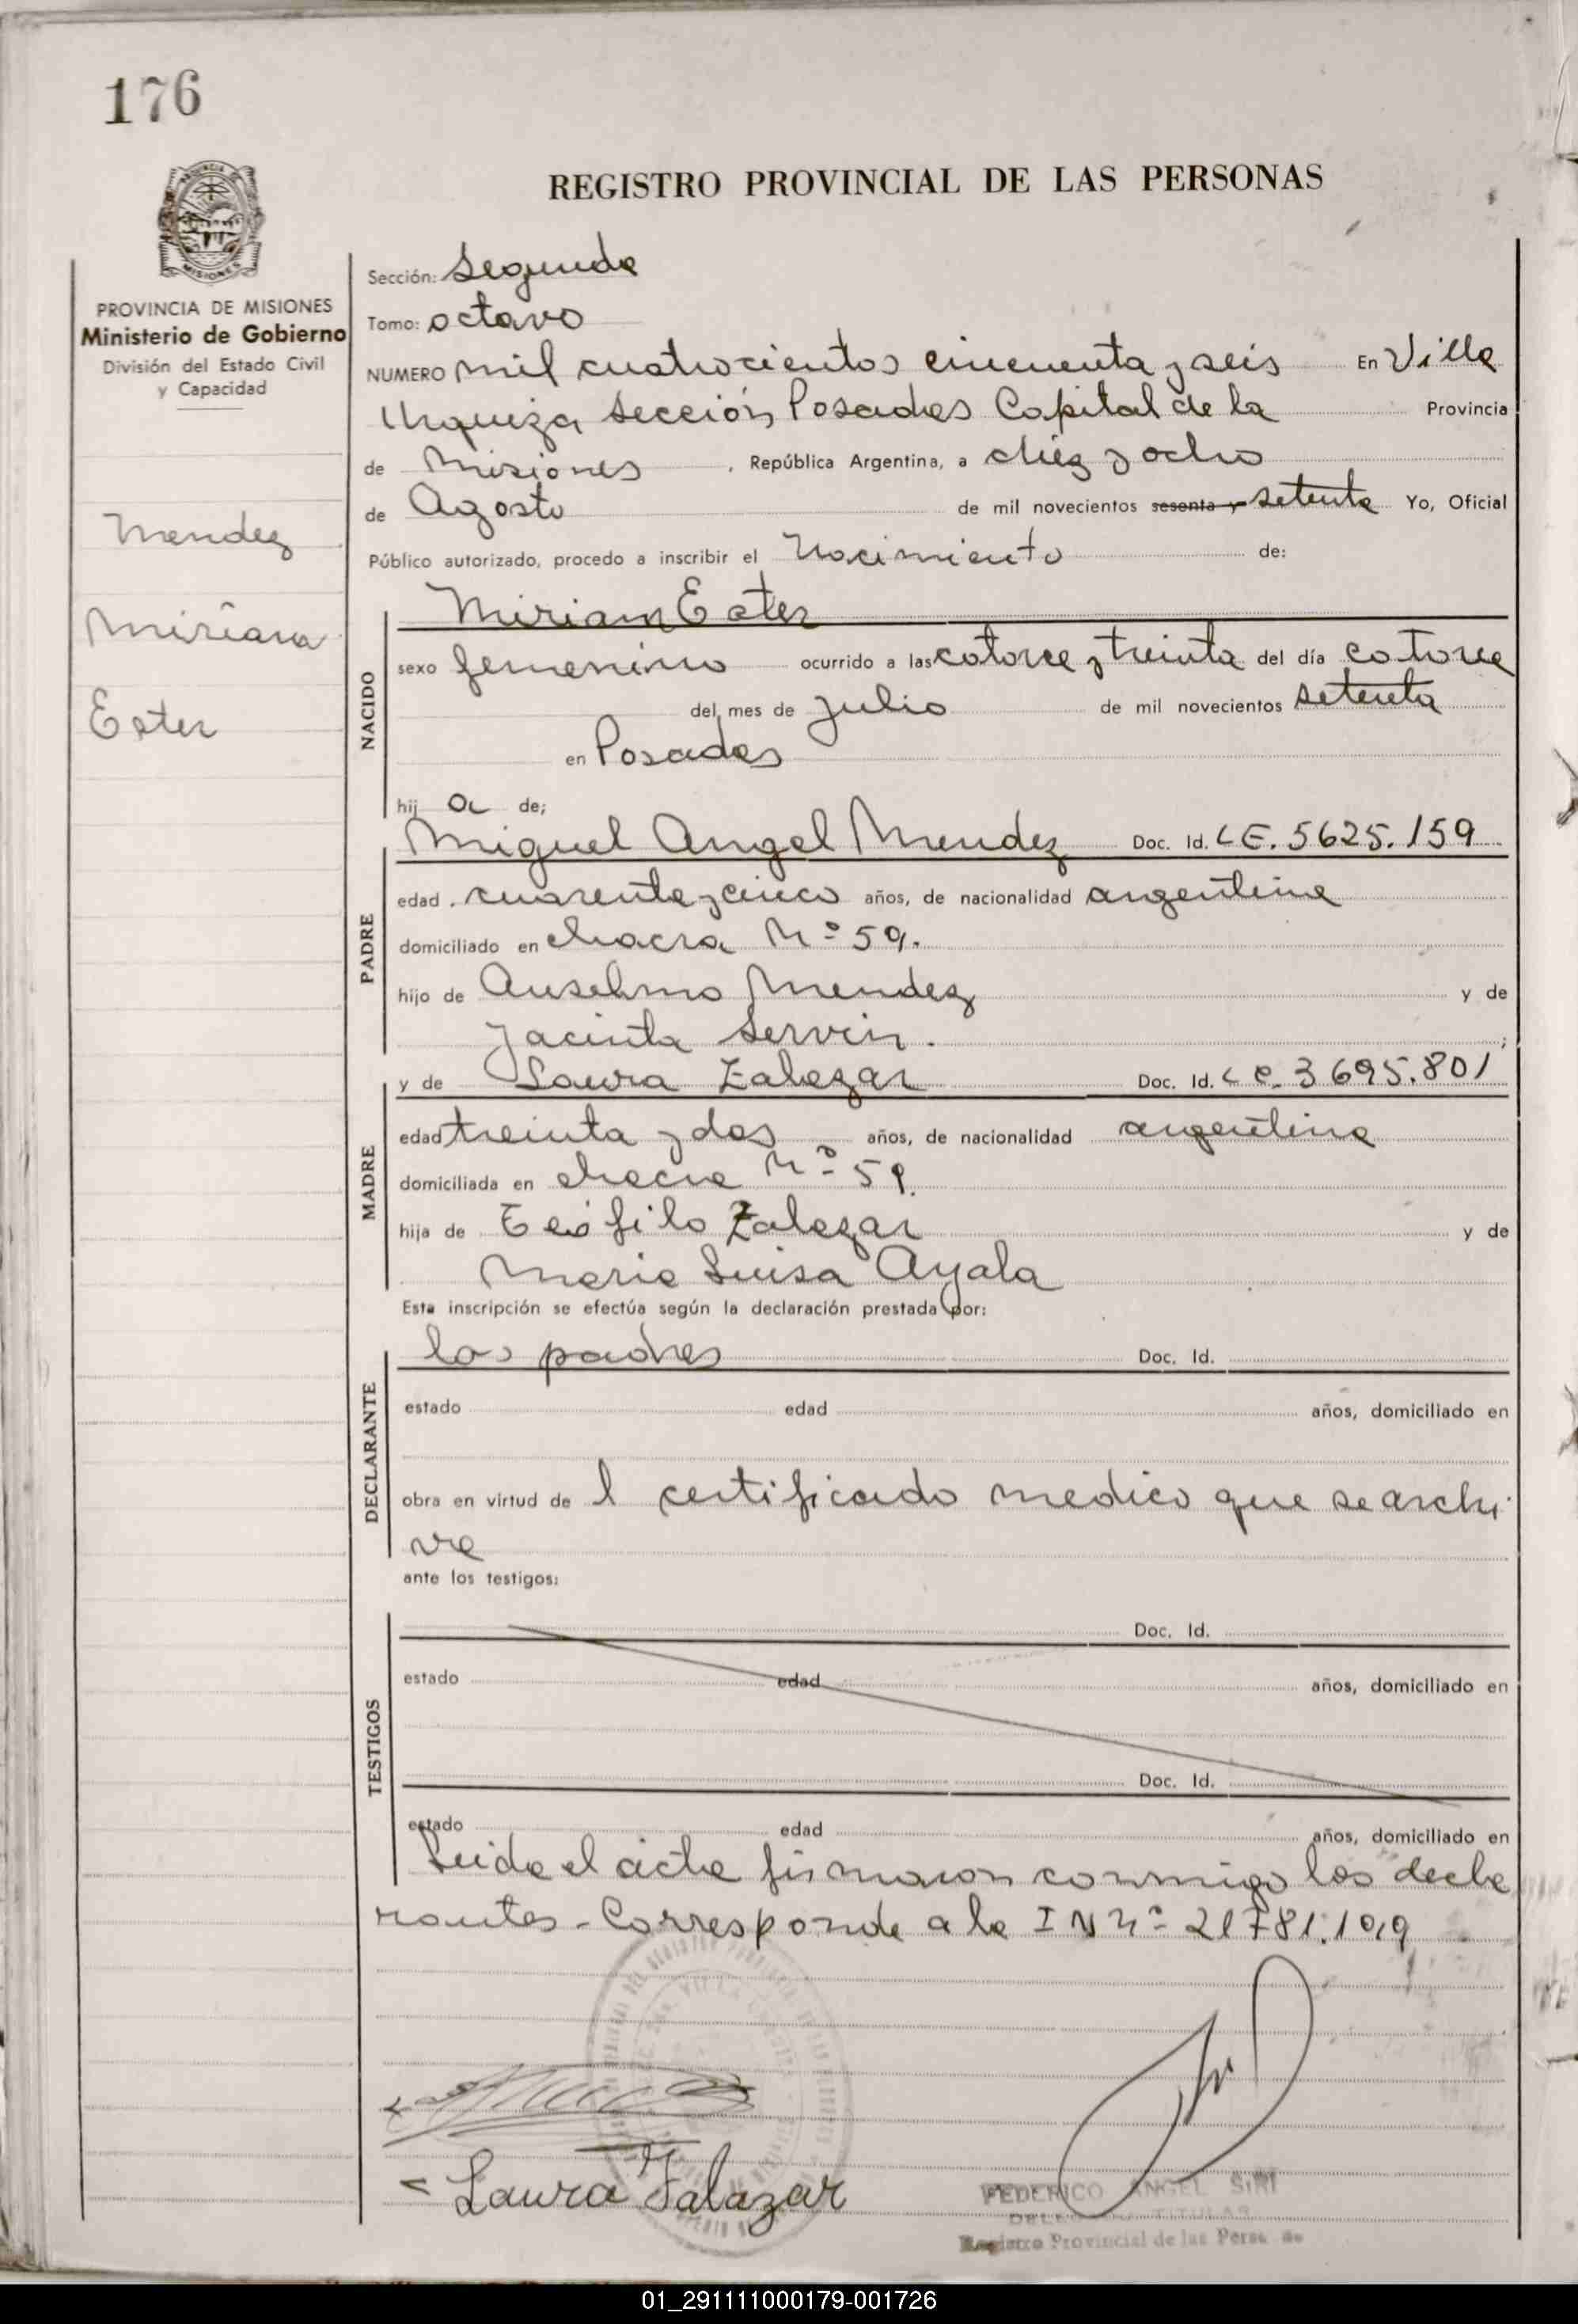 176
REGISTRO PROVINCIAL DE LAS PERSONAS
MISIONES
PROVINCIA DE MISIONES
Ministerio de Gobierno
División del Estado Civil
y Capacidad
Mendez
Miriam
Ester
Sección: Segunda
Tomo: octavo
NUMERO mil cuatrocientos cincuenta y seis En Villa
Urquiza Sección Posadas Capital de la Provincia
de Misiones, República Argentina, a diez y ocho
de Agosto de mil novecientos sesenta y setenta Yo, Oficial
Público autorizado, procedo a inscribir el Nacimiento de:
NACIDO
Miriam Ester
sexo femenino ocurrido a las catorce y treinta del día catorce
del mes de Julio de mil novecientos setenta
en Posadas
hij a de;
PADRE
Miguel Angel Mendez Doc. Id. LE. 5625.159
edad cuarenta y cinco años, de nacionalidad argentina
domiciliado en chacra Nº 59.
hijo de Anselmo Mendez y de
Jacinta Servin.;
MADRE
y de Laura Zalazar Doc. Id. L C. 3695.801
edad treinta y dos años, de nacionalidad argentina
domiciliada en chacra Nº 59.
hija de Teófilo Zalazar y de
Maria Luisa Ayala
Esta inscripción se efectúa según la declaración prestada por:
DECLARANTE
los padres Doc. Id.
estado edad años, domiciliado en
obra en virtud de l certificado medico que se archi
va
ante los testigos:
TESTIGOS
Doc. Id.
estado edad años, domiciliado en
Doc. Id.
estado edad años, domiciliado en
Leida el acta firmaron conmigo los decla
rantes - Corresponde a la I N Nº 21781.109
Laura Zalazar
FEDERICO ANGEL SIRI
DELEGADO TITULAR
Registro Provincial de las Personas
01_291111000179-001726